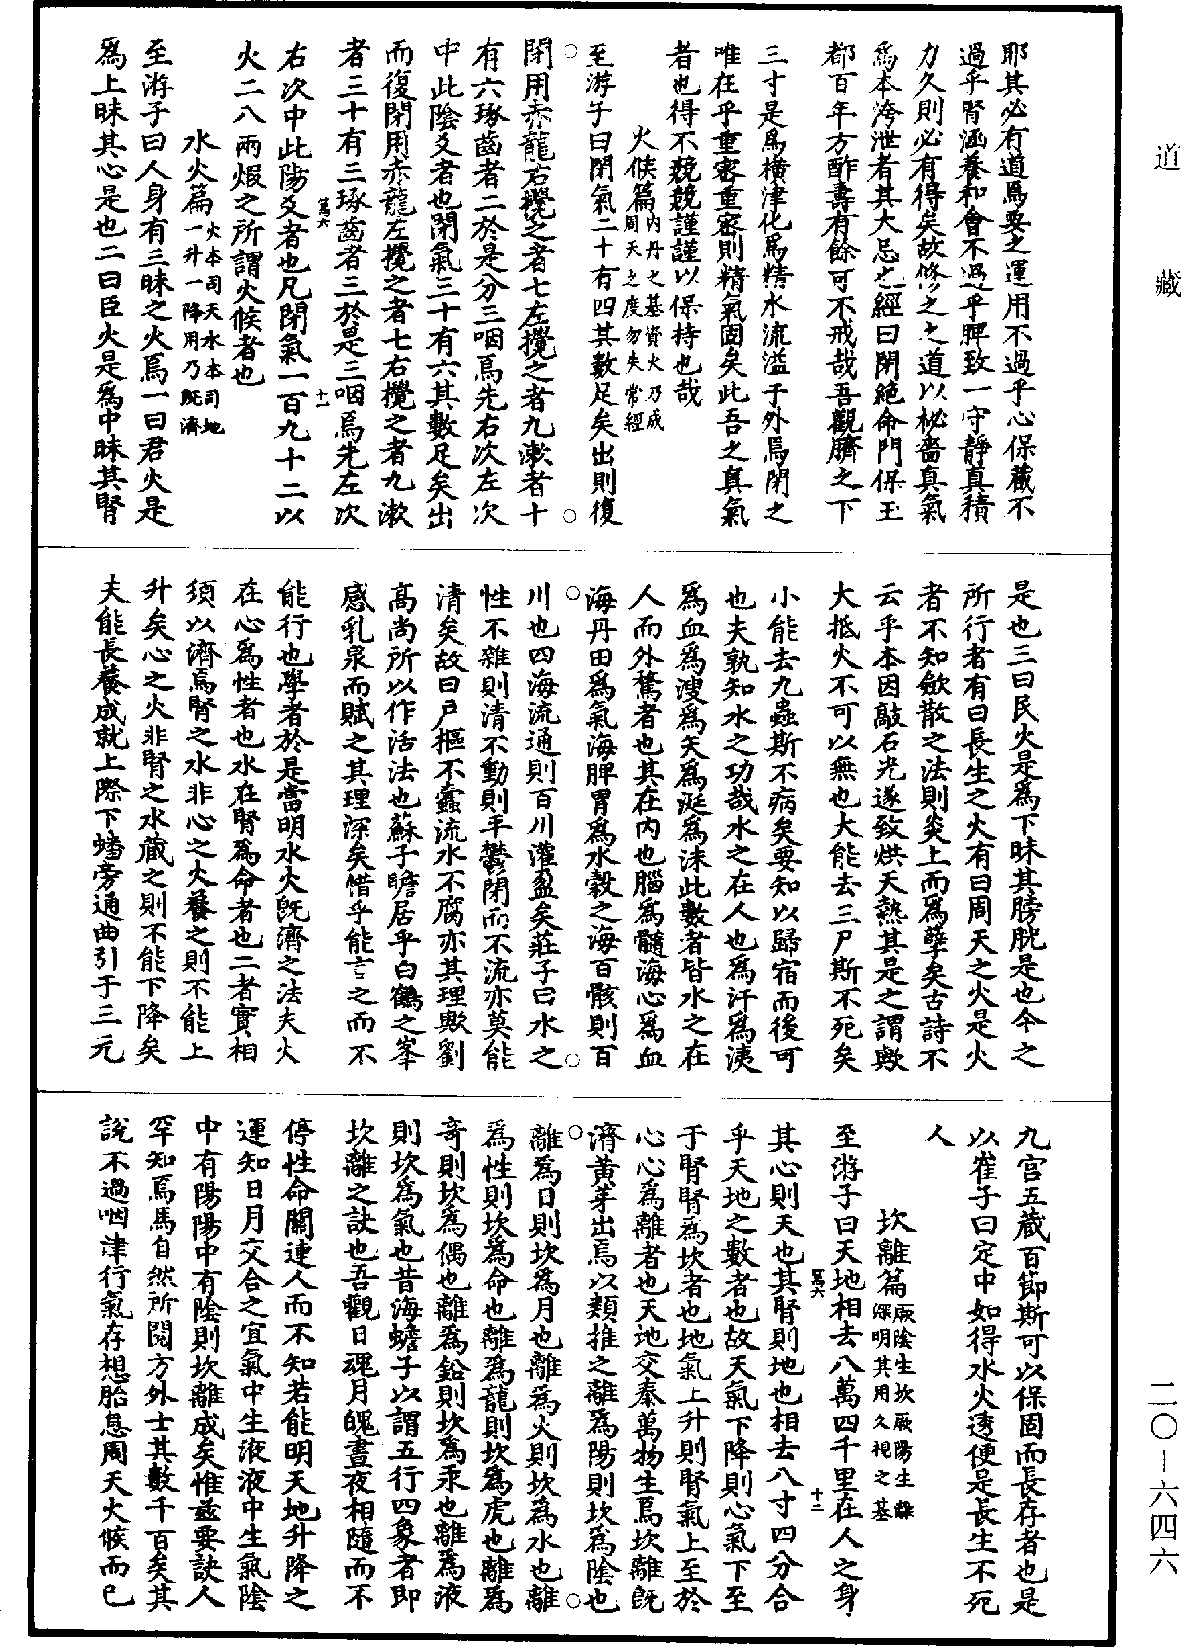 道藏
耶其必有道焉要之運用不過乎心保藏不
過乎腎涵養和會不過乎脾致一守靜真積
力久則必有得矣故修之之道以祕嗇真氣
為本洿泄者其大忌也經曰閉絕命門保玉
都百年方酢壽有餘可不戒哉吾觀臍之下
三寸是為橫津化為精水流溢于外焉閉之
唯在乎重密重密則精氣固矣此吾之真氣
者也得不兢兢謹謹以保持也哉
火候篇內丹之基資火乃成周天之度勿失常經
至游子曰閉氣二十有四其數足矣出則復
閉用赤龍右攪之者七左攪之者九漱者十
有六琢齒者二於是分三咽焉先右次左次
中此陰爻者也閉氣三十有六其數足矣出
而復閉用赤龍左攪之者七右攪之者九漱
篤六 十一
者三十有三琢齒者三於是三咽焉先左次
右次中此陽爻者也凡閉氣一百九十二以
火二八兩煆之所謂火候者也
水火篇火本司天水本司地一升一降用乃既濟
至游子曰人身有三昧之火焉一曰君火是
為上昧其心是也二曰臣火是為中昧其腎
是也三曰民火是為下昧其膀胱是也今之
所行者有曰長生之火有曰周天之火是火
者不知斂散之法則炎上而為孽矣古詩不
云乎本因敲石光遂致烘天熱其是之謂歟
大抵火不可以無也大能去三尸斯不死矣
小能去九蟲斯不病矣要知以歸宿而後可
也夫孰知水之功哉水之在人也為汗為洟
為血為溲為矢為涎為沫此數者皆水之在
人而外騖者也其在內也腦為髓海心為血
海丹田為氣海脾胃為水穀之海百骸則百
川也四海流通則百川灌盈矣莊子曰水之
性不雜則清不動則平鬱閉而不流亦莫能
清矣故曰戶樞不蠹流水不腐亦其理歟劉
高尚所以作活法也蘇子瞻居乎白鶴之峯
感乳泉而賦之其理深矣惜乎能言之而不
能行也學者於是當明水火既濟之法夫火
在心為性者也水在腎為命者也二者實相
須以濟焉腎之水非心之火養之則不能上
升矣心之火非腎之水藏之則不能下降矣
夫能長養成就上際下蟠旁通曲引于三元
九宮五藏百節斯可以保固而長存者也是
以崔子曰定中如得水火透便是長生不死
人
坎離篇厥陰生坎厥陽生離深明其用久視之基
篤六 十二
至游子曰天地相去八萬四千里在人之身
其心則天也其腎則地也相去八寸四分合
乎天地之數者也故天氣下降則心氣下至
于腎腎為坎者也地氣上升則腎氣上至於
心心為離者也天地交泰萬物生焉坎離既
濟黃芽出焉以類推之離為陽則坎為陰也
離為日則坎為月也離為火則坎為水也離
為性則坎為命也離為龍則坎為虎也離為
奇則坎為偶也離為鉛則坎為汞也離為液
則坎為氣也昔海蟾子以謂五行四象者即
坎離之訣也吾觀日魂月魄晝夜相隨而不
停性命關連人而不知若能明天地升降之
運知日月交合之宜氣中生液液中生氣陰
中有陽陽中有陰則坎離成矣惟茲要訣人
罕知焉馬自然所閱方外士其數千百矣其
說不過咽津行氣存想胎息周天火候而已
二〇—六四六